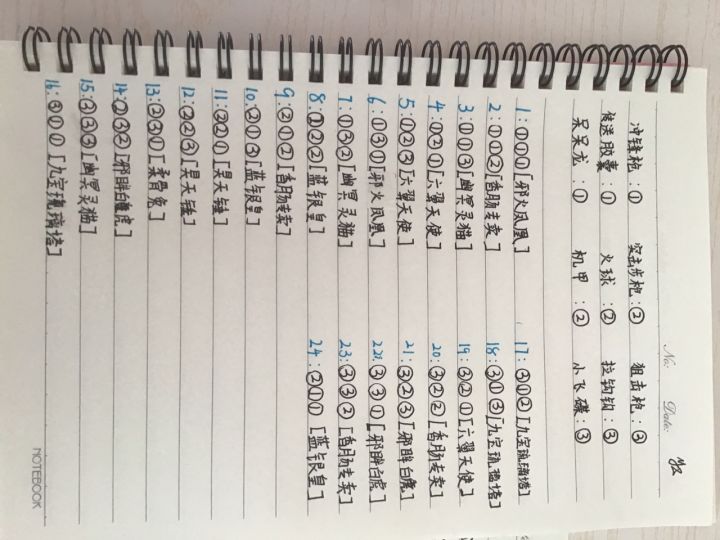 No: Date:
冲锋枪:① 突击步枪:② 狙击枪:③
传送胶囊:① 火球:② 拉钩钩:③
呆呆龙:① 机甲:② 小飞碟:③
1:①①①[邪火凤凰]
2:①①②[香肠专卖]
3:①①③[幽冥灵猫]
4:①②①[六翼天使]
5:①②③[六翼天使]
6:①③①[邪火凤凰]
7:①③②[幽冥灵猫]
8:①②②[蓝银皇]
9:②①②[香肠专卖]
10:②①③[蓝银皇]
11:②②①[昊天锤]
12:②②③[昊天锤]
13:②③①[柔骨兔]
14:②③②[邪眸白虎]
15:②③③[幽冥灵猫]
16:③①①[九宝琉璃塔]
17:③①②[九宝琉璃塔]
18:③①③[九宝琉璃塔]
19:③②①[六翼天使]
20:③②②[香肠专卖]
21:③②③[邪眸白虎]
22:③③①[邪眸白虎]
23:③③②[香肠专卖]
24:②①①[蓝银皇]
NOTEBOOK